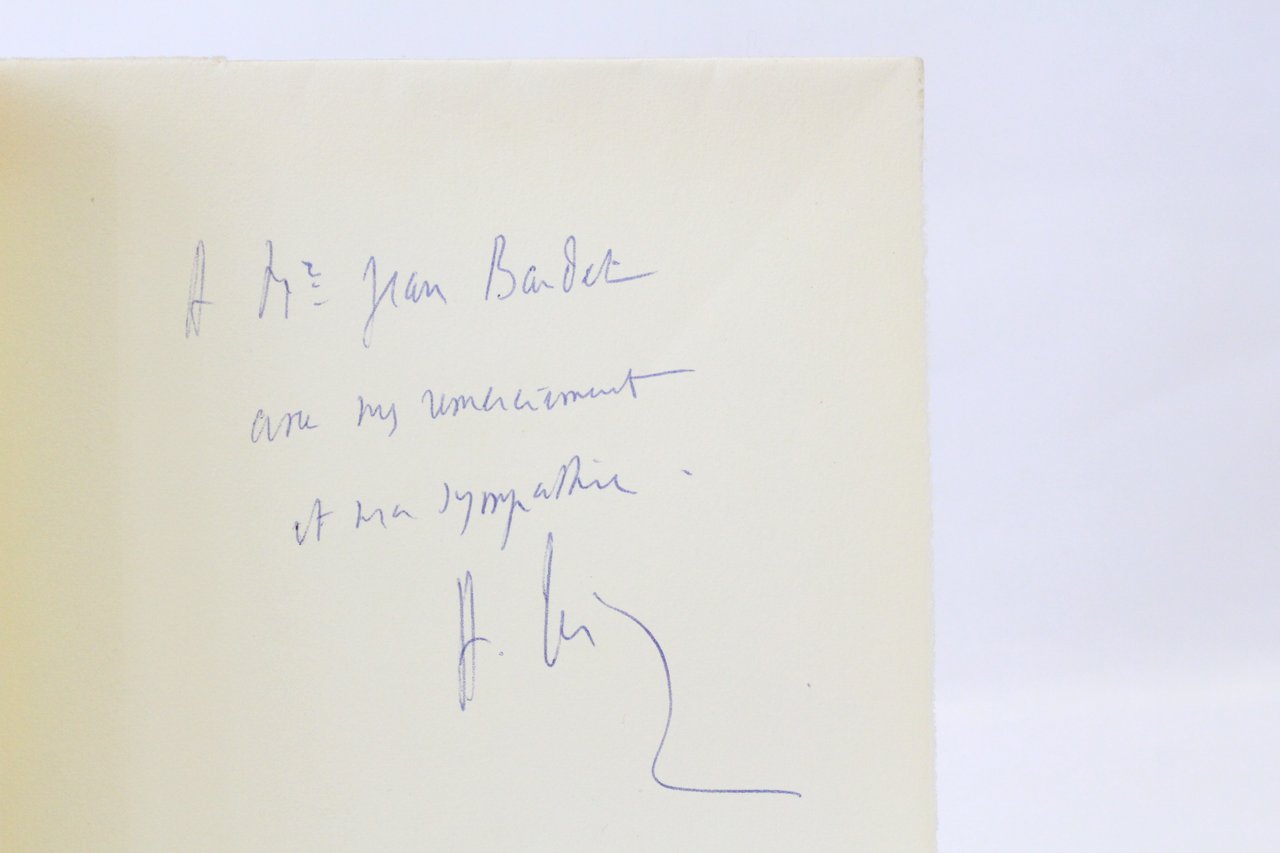 A Mr Jean Bardet
avec mes remerciements
et ma sympathie.
A.